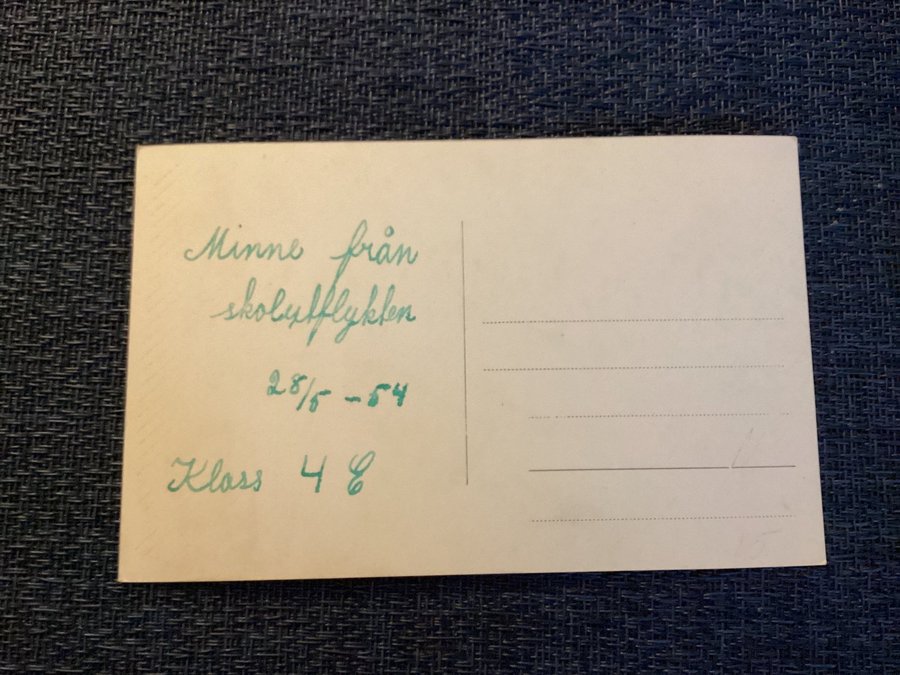 Minne från
skolutflykten
28/5 - 54
Klass 4 E